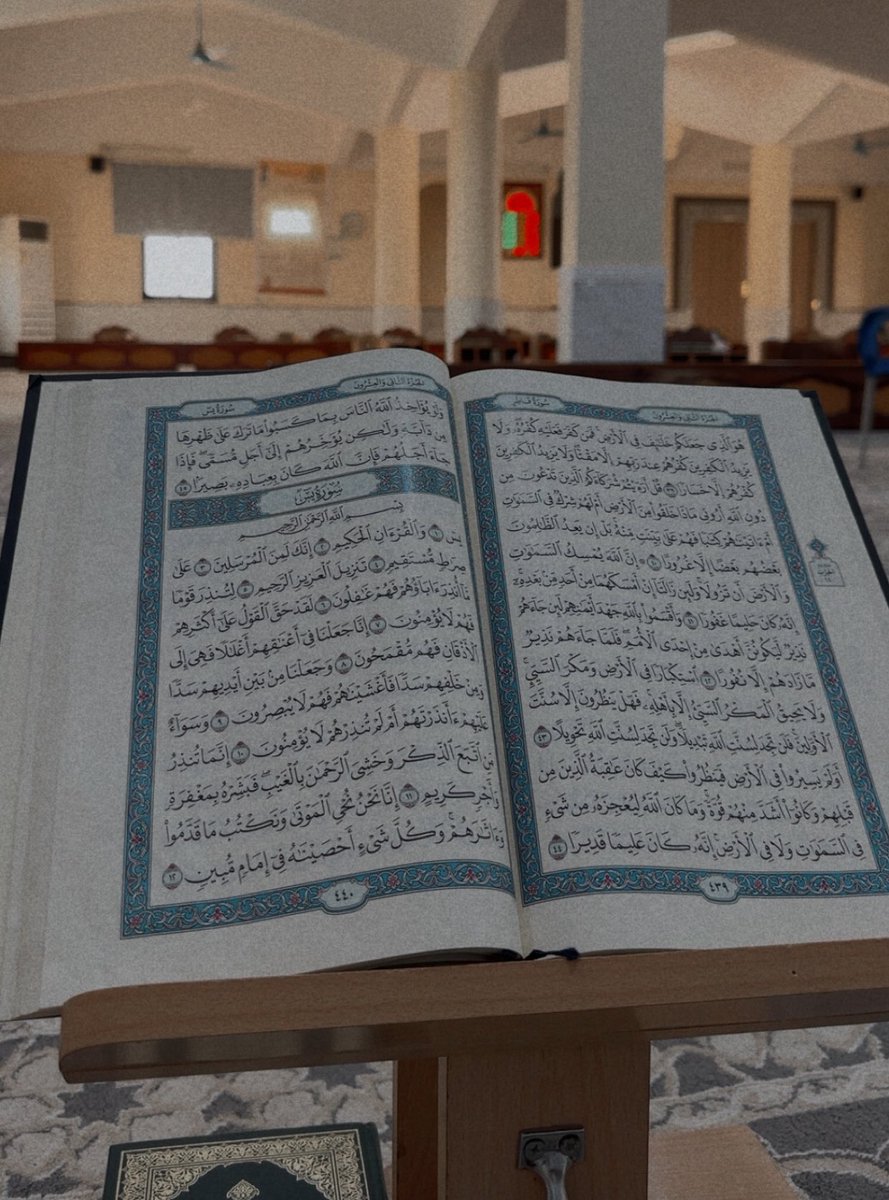 الجُزْءُ الثَّانِي وَالعِشْرُونَ سُورَةُ فَاطِر
هُوَ ٱلَّذِي جَعَلَكُمْ خَلَٰٓئِفَ فِي ٱلْأَرْضِۚ فَمَن كَفَرَ فَعَلَيْهِ كُفْرُهُۥۖ وَلَا
يَزِيدُ ٱلْكَٰفِرِينَ كُفْرُهُمْ عِندَ رَبِّهِمْ إِلَّا مَقْتًاۖ وَلَا يَزِيدُ ٱلْكَٰفِرِينَ
كُفْرُهُمْ إِلَّا خَسَارًا ٣٩ قُلْ أَرَءَيْتُمْ شُرَكَآءَكُمُ ٱلَّذِينَ تَدْعُونَ مِن
دُونِ ٱللَّهِ أَرُونِي مَاذَا خَلَقُوا۟ مِنَ ٱلْأَرْضِ أَمْ لَهُمْ شِرْكٌ فِي ٱلسَّمَٰوَٰتِ
أَمْ ءَاتَيْنَٰهُمْ كِتَٰبًا فَهُمْ عَلَىٰ بَيِّنَتٍ مِّنْهُۚ بَلْ إِن يَعِدُ ٱلظَّٰلِمُونَ
بَعْضُهُم بَعْضًا إِلَّا غُرُورًا ٤٠ إِنَّ ٱللَّهَ يُمْسِكُ ٱلسَّمَٰوَٰتِ
وَٱلْأَرْضَ أَن تَزُولَاۚ وَلَئِن زَالَتَآ إِنْ أَمْسَكَهُمَا مِنْ أَحَدٍ مِّنۢ بَعْدِهِۦٓۚ
إِنَّهُۥ كَانَ حَلِيمًا غَفُورًا ٤١ وَأَقْسَمُوا۟ بِٱللَّهِ جَهْدَ أَيْمَٰنِهِمْ لَئِن جَآءَهُمْ
نَذِيرٌ لَّيَكُونُنَّ أَهْدَىٰ مِنْ إِحْدَى ٱلْأُمَمِۖ فَلَمَّا جَآءَهُمْ نَذِيرٌ
مَّا زَادَهُمْ إِلَّا نُفُورًا ٤٢ ٱسْتِكْبَارًا فِي ٱلْأَرْضِ وَمَكْرَ ٱلسَّيِّئِۚ
وَلَا يَحِيقُ ٱلْمَكْرُ ٱلسَّيِّئُ إِلَّا بِأَهْلِهِۦۚ فَهَلْ يَنظُرُونَ إِلَّا سُنَّتَ
ٱلْأَوَّلِينَۚ فَلَن تَجِدَ لِسُنَّتِ ٱللَّهِ تَبْدِيلًاۖ وَلَن تَجِدَ لِسُنَّتِ ٱللَّهِ تَحْوِيلًا ٤٣
أَوَلَمْ يَسِيرُوا۟ فِي ٱلْأَرْضِ فَيَنظُرُوا۟ كَيْفَ كَانَ عَٰقِبَةُ ٱلَّذِينَ مِن
قَبْلِهِمْ وَكَانُوٓا۟ أَشَدَّ مِنْهُمْ قُوَّةًۚ وَمَا كَانَ ٱللَّهُ لِيُعْجِزَهُۥ مِن شَيْءٍ
فِي ٱلسَّمَٰوَٰتِ وَلَا فِي ٱلْأَرْضِۚ إِنَّهُۥ كَانَ عَلِيمًا قَدِيرًا ٤٤
٤٣٩
الجُزْءُ الثَّانِي وَالعِشْرُونَ سُورَةُ يسٓ
وَلَوْ يُؤَاخِذُ ٱللَّهُ ٱلنَّاسَ بِمَا كَسَبُوا۟ مَا تَرَكَ عَلَىٰ ظَهْرِهَا
مِن دَآبَّةٍ وَلَٰكِن يُؤَخِّرُهُمْ إِلَىٰٓ أَجَلٍ مُّسَمًّىۖ فَإِذَا
جَآءَ أَجَلُهُمْ فَإِنَّ ٱللَّهَ كَانَ بِعِبَادِهِۦ بَصِيرًۢا ٤٥
سُورَةُ يسٓ
بِسْمِ ٱللَّهِ ٱلرَّحْمَٰنِ ٱلرَّحِيمِ
يسٓ ١ وَٱلْقُرْءَانِ ٱلْحَكِيمِ ٢ إِنَّكَ لَمِنَ ٱلْمُرْسَلِينَ ٣ عَلَىٰ
صِرَٰطٍ مُّسْتَقِيمٍ ٤ تَنزِيلَ ٱلْعَزِيزِ ٱلرَّحِيمِ ٥ لِتُنذِرَ قَوْمًا
مَّآ أُنذِرَ ءَابَآؤُهُمْ فَهُمْ غَٰفِلُونَ ٦ لَقَدْ حَقَّ ٱلْقَوْلُ عَلَىٰٓ أَكْثَرِهِمْ
فَهُمْ لَا يُؤْمِنُونَ ٧ إِنَّا جَعَلْنَا فِيٓ أَعْنَٰقِهِمْ أَغْلَٰلًا فَهِيَ إِلَى
ٱلْأَذْقَانِ فَهُم مُّقْمَحُونَ ٨ وَجَعَلْنَا مِنۢ بَيْنِ أَيْدِيهِمْ سَدًّا
وَمِنْ خَلْفِهِمْ سَدًّا فَأَغْشَيْنَٰهُمْ فَهُمْ لَا يُبْصِرُونَ ٩ وَسَوَآءٌ
عَلَيْهِمْ ءَأَنذَرْتَهُمْ أَمْ لَمْ تُنذِرْهُمْ لَا يُؤْمِنُونَ ١٠ إِنَّمَا تُنذِرُ
مَنِ ٱتَّبَعَ ٱلذِّكْرَ وَخَشِيَ ٱلرَّحْمَٰنَ بِٱلْغَيْبِۖ فَبَشِّرْهُ بِمَغْفِرَةٍ
وَأَجْرٍ كَرِيمٍ ١١ إِنَّا نَحْنُ نُحْيِ ٱلْمَوْتَىٰ وَنَكْتُبُ مَا قَدَّمُوا۟
وَءَاثَٰرَهُمْۚ وَكُلَّ شَيْءٍ أَحْصَيْنَٰهُ فِيٓ إِمَامٍ مُّبِينٍ ١٢
٤٤٠